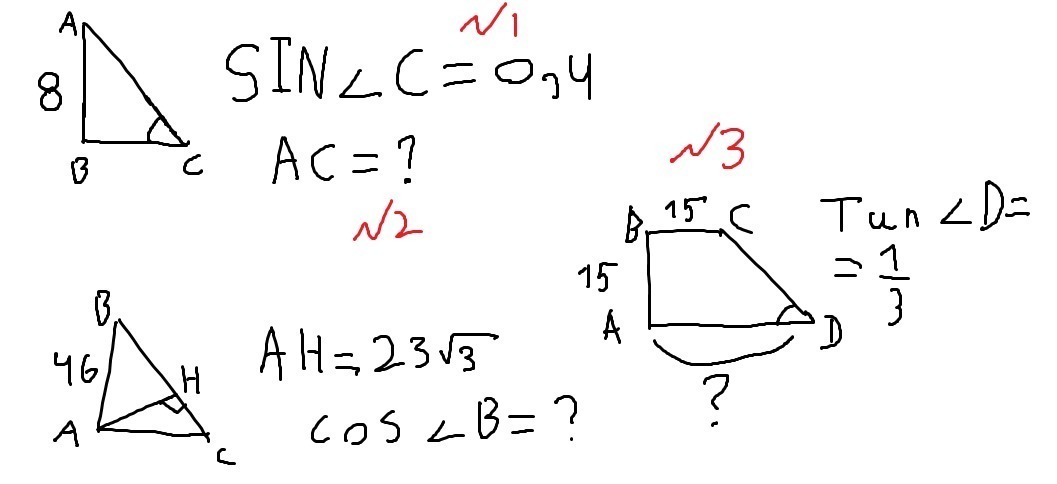 √1
A
8
B
C
SIN∠C=0,4
AC=?
√2
B
46
A
H
C
AH=23√3
cos∠B=?
√3
B
15
C
15
A
D
?
Tun∠D=
=1/3